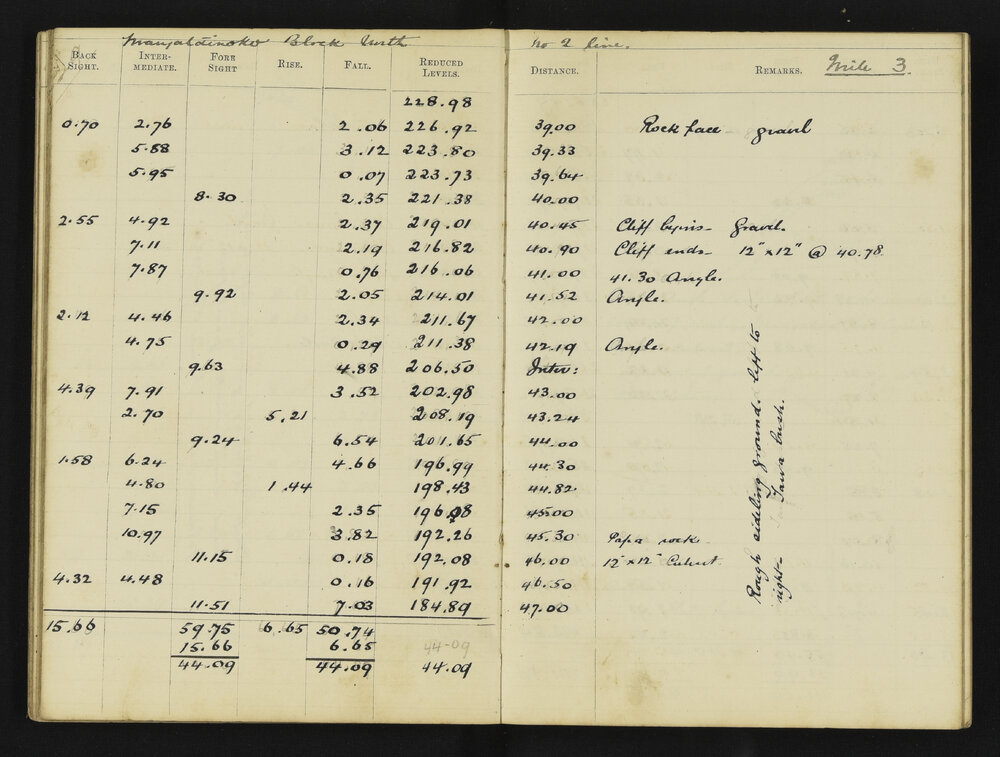 Block North No 2 line.
BACK SIGHT. INTER-MEDIATE. FORE SIGHT RISE. FALL. REDUCED LEVELS. DISTANCE. REMARKS. Mile 3
228.98
0.70 2.76 2.06 226.92 39.00 Rock face gravel
5.88 3.12 223.80 39.33
5.95 0.07 223.73 39.64
8.30 2.35 221.38 40.00
2.55 4.92 2.37 219.01 40.45 Cliff begins - gravel.
7.11 2.19 216.82 40.90 Cliff ends - 12" x 12" @ 40.78
7.87 0.76 216.06 41.00 41.30 Angle.
9.92 2.05 214.01 41.52 Angle.
2.12 4.46 2.34 211.67 42.00
4.75 0.29 211.38 42.19 Angle.
9.63 4.88 206.50 Inter:
4.39 7.91 3.52 202.98 43.00
2.70 5.21 208.19 43.24
9.24 6.54 201.65 44.00
1.58 6.24 4.66 196.99 44.30
4.80 1.44 198.43 44.82
7.15 2.35 196.08 45.00
10.97 3.82 192.26 45.30 Papa rock
11.15 0.18 192.08 46.00 12" x 12" Culvert
4.32 4.48 0.16 191.92 46.50
11.51 7.03 184.89 47.00
15.66 59.75 6.65 50.74
15.66 6.65 44-09
44.09 44.09 44.09
Rough sideling ground. left to
right - Tawa bush.